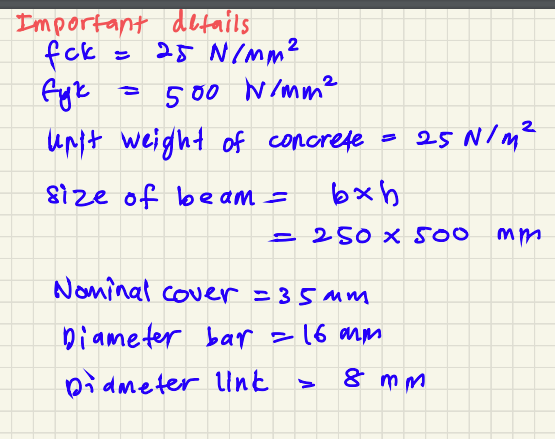 Important details
fck = 25 N/mm²
fyk = 500 N/mm²
Unit weight of concrete = 25 N/m²
Size of beam = b×h
= 250 × 500 mm
Nominal cover = 35 mm
Diameter bar = 16 mm
Diameter link = 8 mm